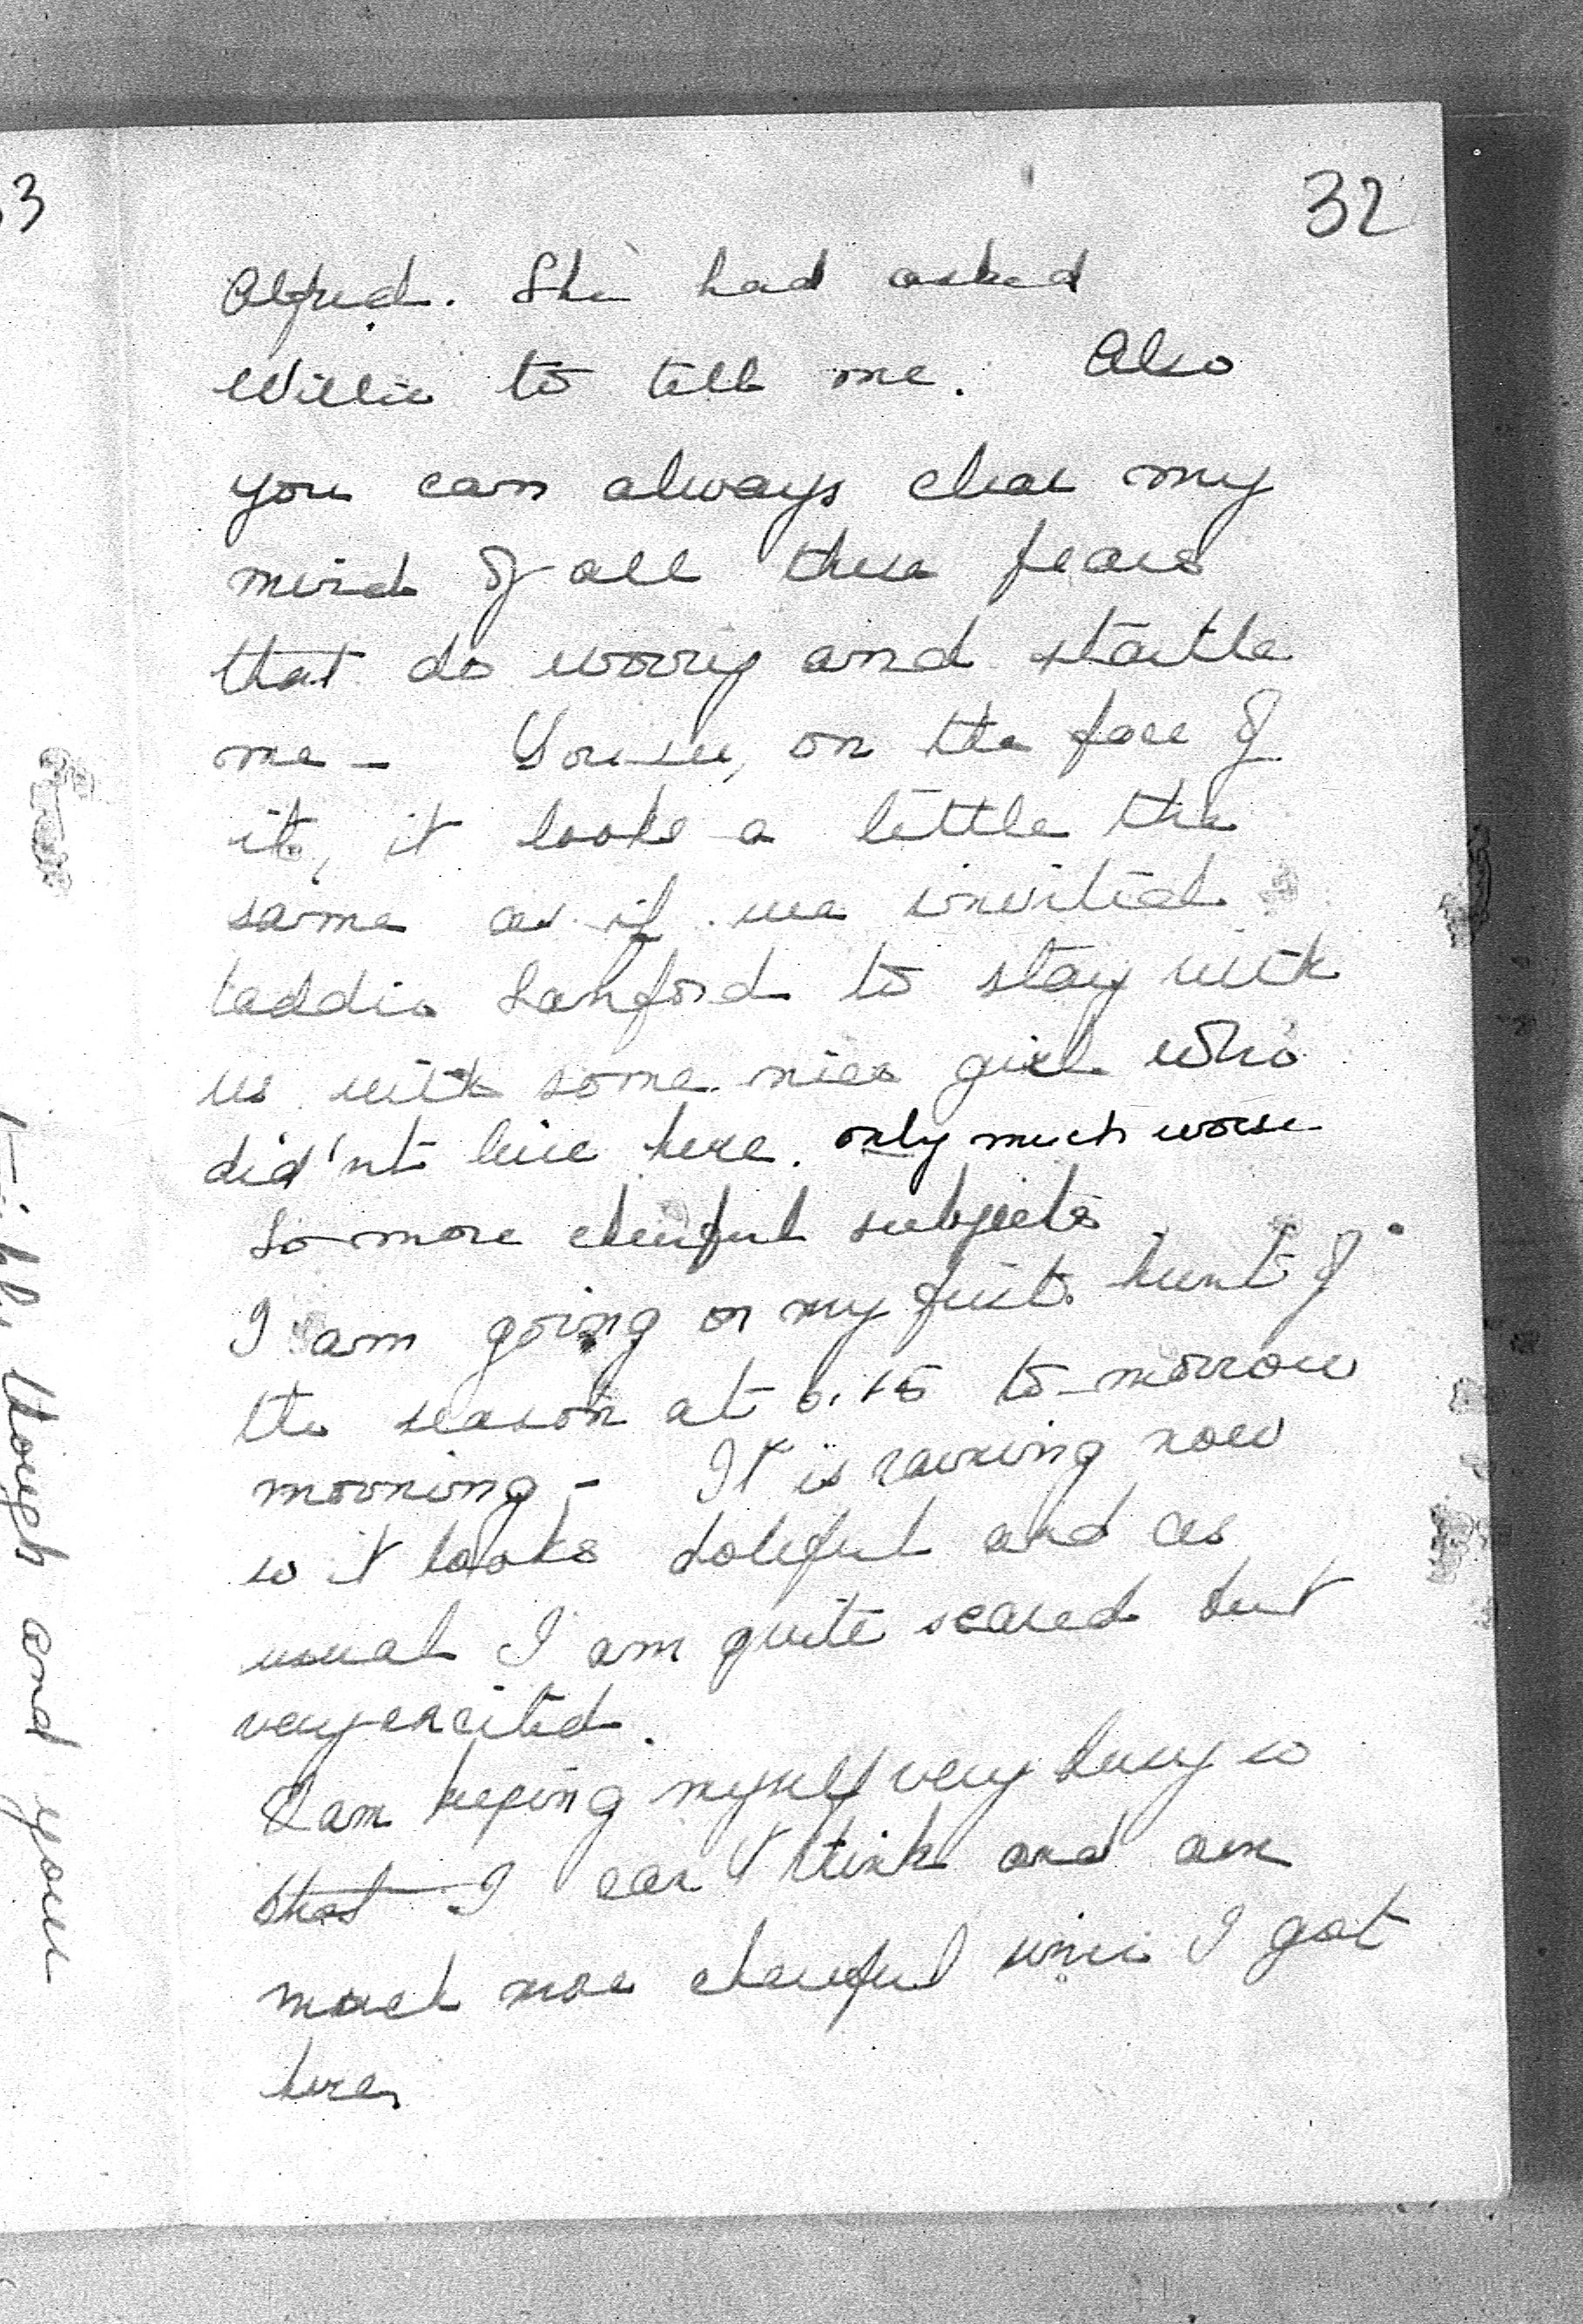 32
Alfred. She had asked
Willie to tell me. Also
you can always clear my
mind of all these fears
that do worry and startle
me - You see, on the face of
it, it looks a little the
same as if we invited
laddie Sanford to stay with
us with some nice girl who
did'nt live here. only much worse
So more cheerful subjects
I am going on my first hunt of
the season at 6.15 to-morrow
morning - It is raining now
so it looks doleful and as
usual I am quite scared but
very excited.
I am keeping myself very busy so
that I can't think and am
much more cheerful since I got
here,
3
though and your